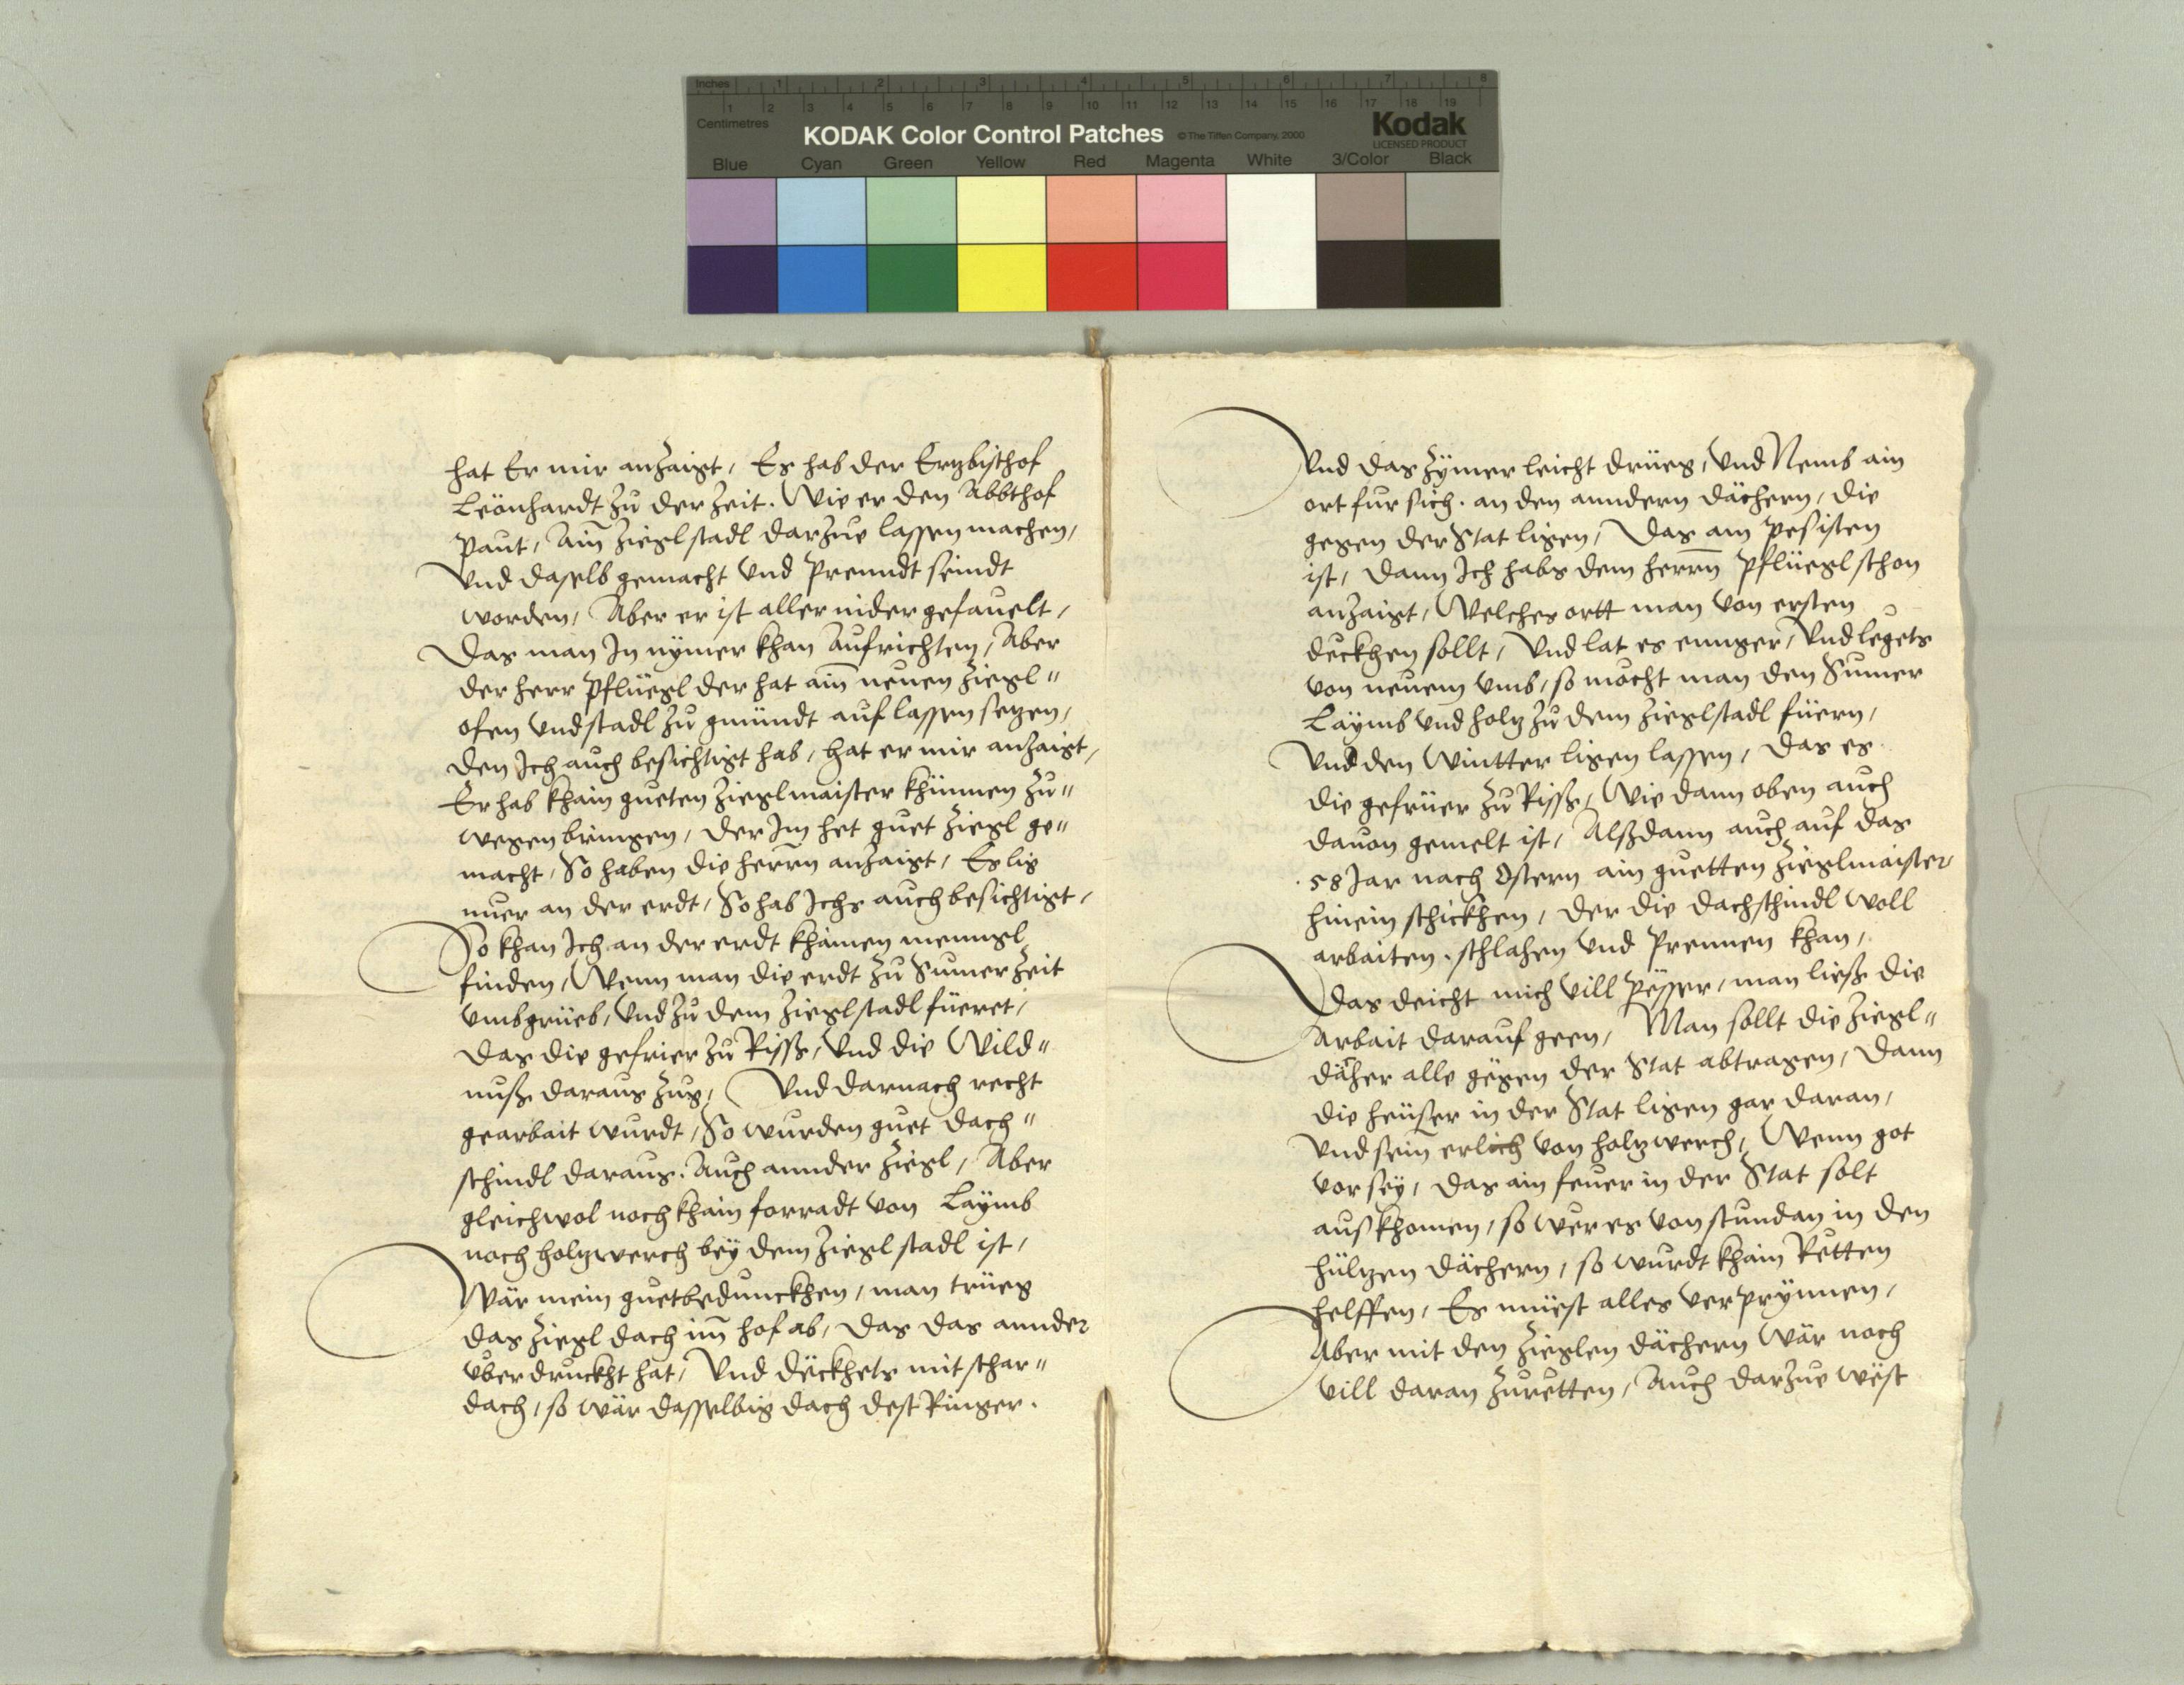 Inches 1 2 3 4 5 6 7 8
1 2 3 4 5 6 7 8 9 10 11 12 13 14 15 16 17 18 19
Centimetres
KODAK Color Control Patches © The Tiffen Company, 2000 Kodak
LICENSED PRODUCT
Blue Cyan Green Yellow Red Magenta White 3/Color Black
hat Er mir anzaigt, Es hab der Ertzbischof
Leönhardt zu der zeit. Wie er den Abbthof
paut, Ain̄ zieglstadl darzue lassen machen,
Vnd daselb gemacht vnd Prenndt seindt
worden, Aber er ist aller nider gefauelt,
Das man In nÿmer khan Aufrichten, Aber
der herr Pflüegl der hat ain̄ neuen ziegl"
ofen vnd stadl zu gmündt auf lassen setzen,
den Ich auch besichtigt hab, hat er mir anzaigt,
Er hab khain gueten zieglmaister khünnen zu"
wegen bringen, der Im het guet ziegl ge"
macht, So haben die herrn anzaigt, Es lig
nuer an der erdt, So hab Ichs auch besichtigt,
So khan Ich an der erdt khainen menngl
finden, Wenn man die erdt zu Sumer zeit
vmbgrüeb, vnd zu dem zieglstadl füeret,
Das die gefrier zu Risß, vnd die Wild"
nuß daraus zug, Vnd darnach recht
gearbait wurdt, So wurden guet dach"
schindl daraus. Auch annder ziegl, Aber
gleichwol noch khain forradt von Laÿmb
noch holtzwerch beÿ dem zieglstadl ist,
Wär mein guetbedunckhen, man trüeg
das ziegl dach im̄ hof ab, das das annder
vberdruckht hat, Vnd deckhets mit schar"
dach, so wär dasselbig dach dest Ringer.
Vnd das zÿmer leicht drüeg, vnd Nemb ain
ort fur sich. an den anndern dächern, die
gegen der Stat ligen, Das am Pesisten
ist, dann Ich habs dem herrn̄ Pflüegl schon
anzaigt, Welches ortt man von ersten
deckhen sollt, Vnd lat es ennger, Vnd legets
von neuem vmb, so mocht man den Sumer
Laÿmb vnd holtz zu dem zieglstadl füern,
Vnd den Wintter ligen lassen, das es
die gefrüer zu Risß, Wie dann oben auch
dauon gemelt ist, Alßdann auch auf das
.58 Jar nach Ostern ain guetten zieglmaister
hinein schickhen, der die dachschindl woll
arbaiten. schlahen vnd Prennen khan,
Das deicht mich vill pësser, man ließ die
Arbait darauf geen, Man sollt die ziegl"
däher alle gegen der Stat abtragen, dann
die heüser in der Stat ligen gar daran,
Vnd sein̄ erlich von holtzwerch, Wenn got
vor seÿ, das ain feuer in der Stat solt
auß khomen, so wer es von stundan in den
hültzen dächern, so wurdt khain Retten
helffen, Es müest alles verprÿnnen,
Aber mit den zieglen dächern wär noch
vill daran zuretten, Auch darzue west